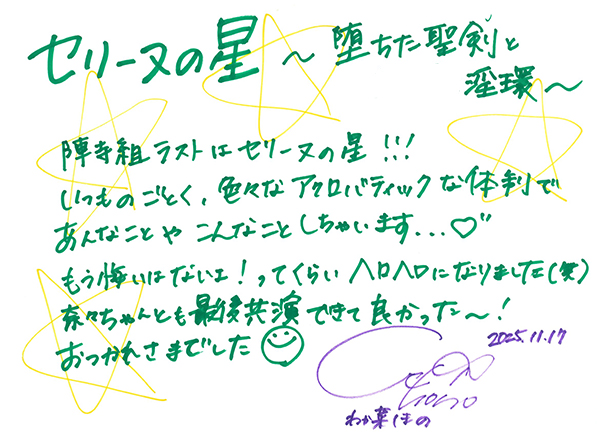 セリーヌの星 ～堕ちた聖剣と
淫環～
陣寺組ラストはセリーヌの星!!!
いつものごとく、色々なアクロバティックな体制で
あんなことや こんなこと しちゃいます...♡"
もう悔いはないェ！ってくらい ヘロヘロになりました(笑)
奈々ちゃんとも最後共演できて良かった～！
おつかれさまでした
2025.11.17
わか菜ほの